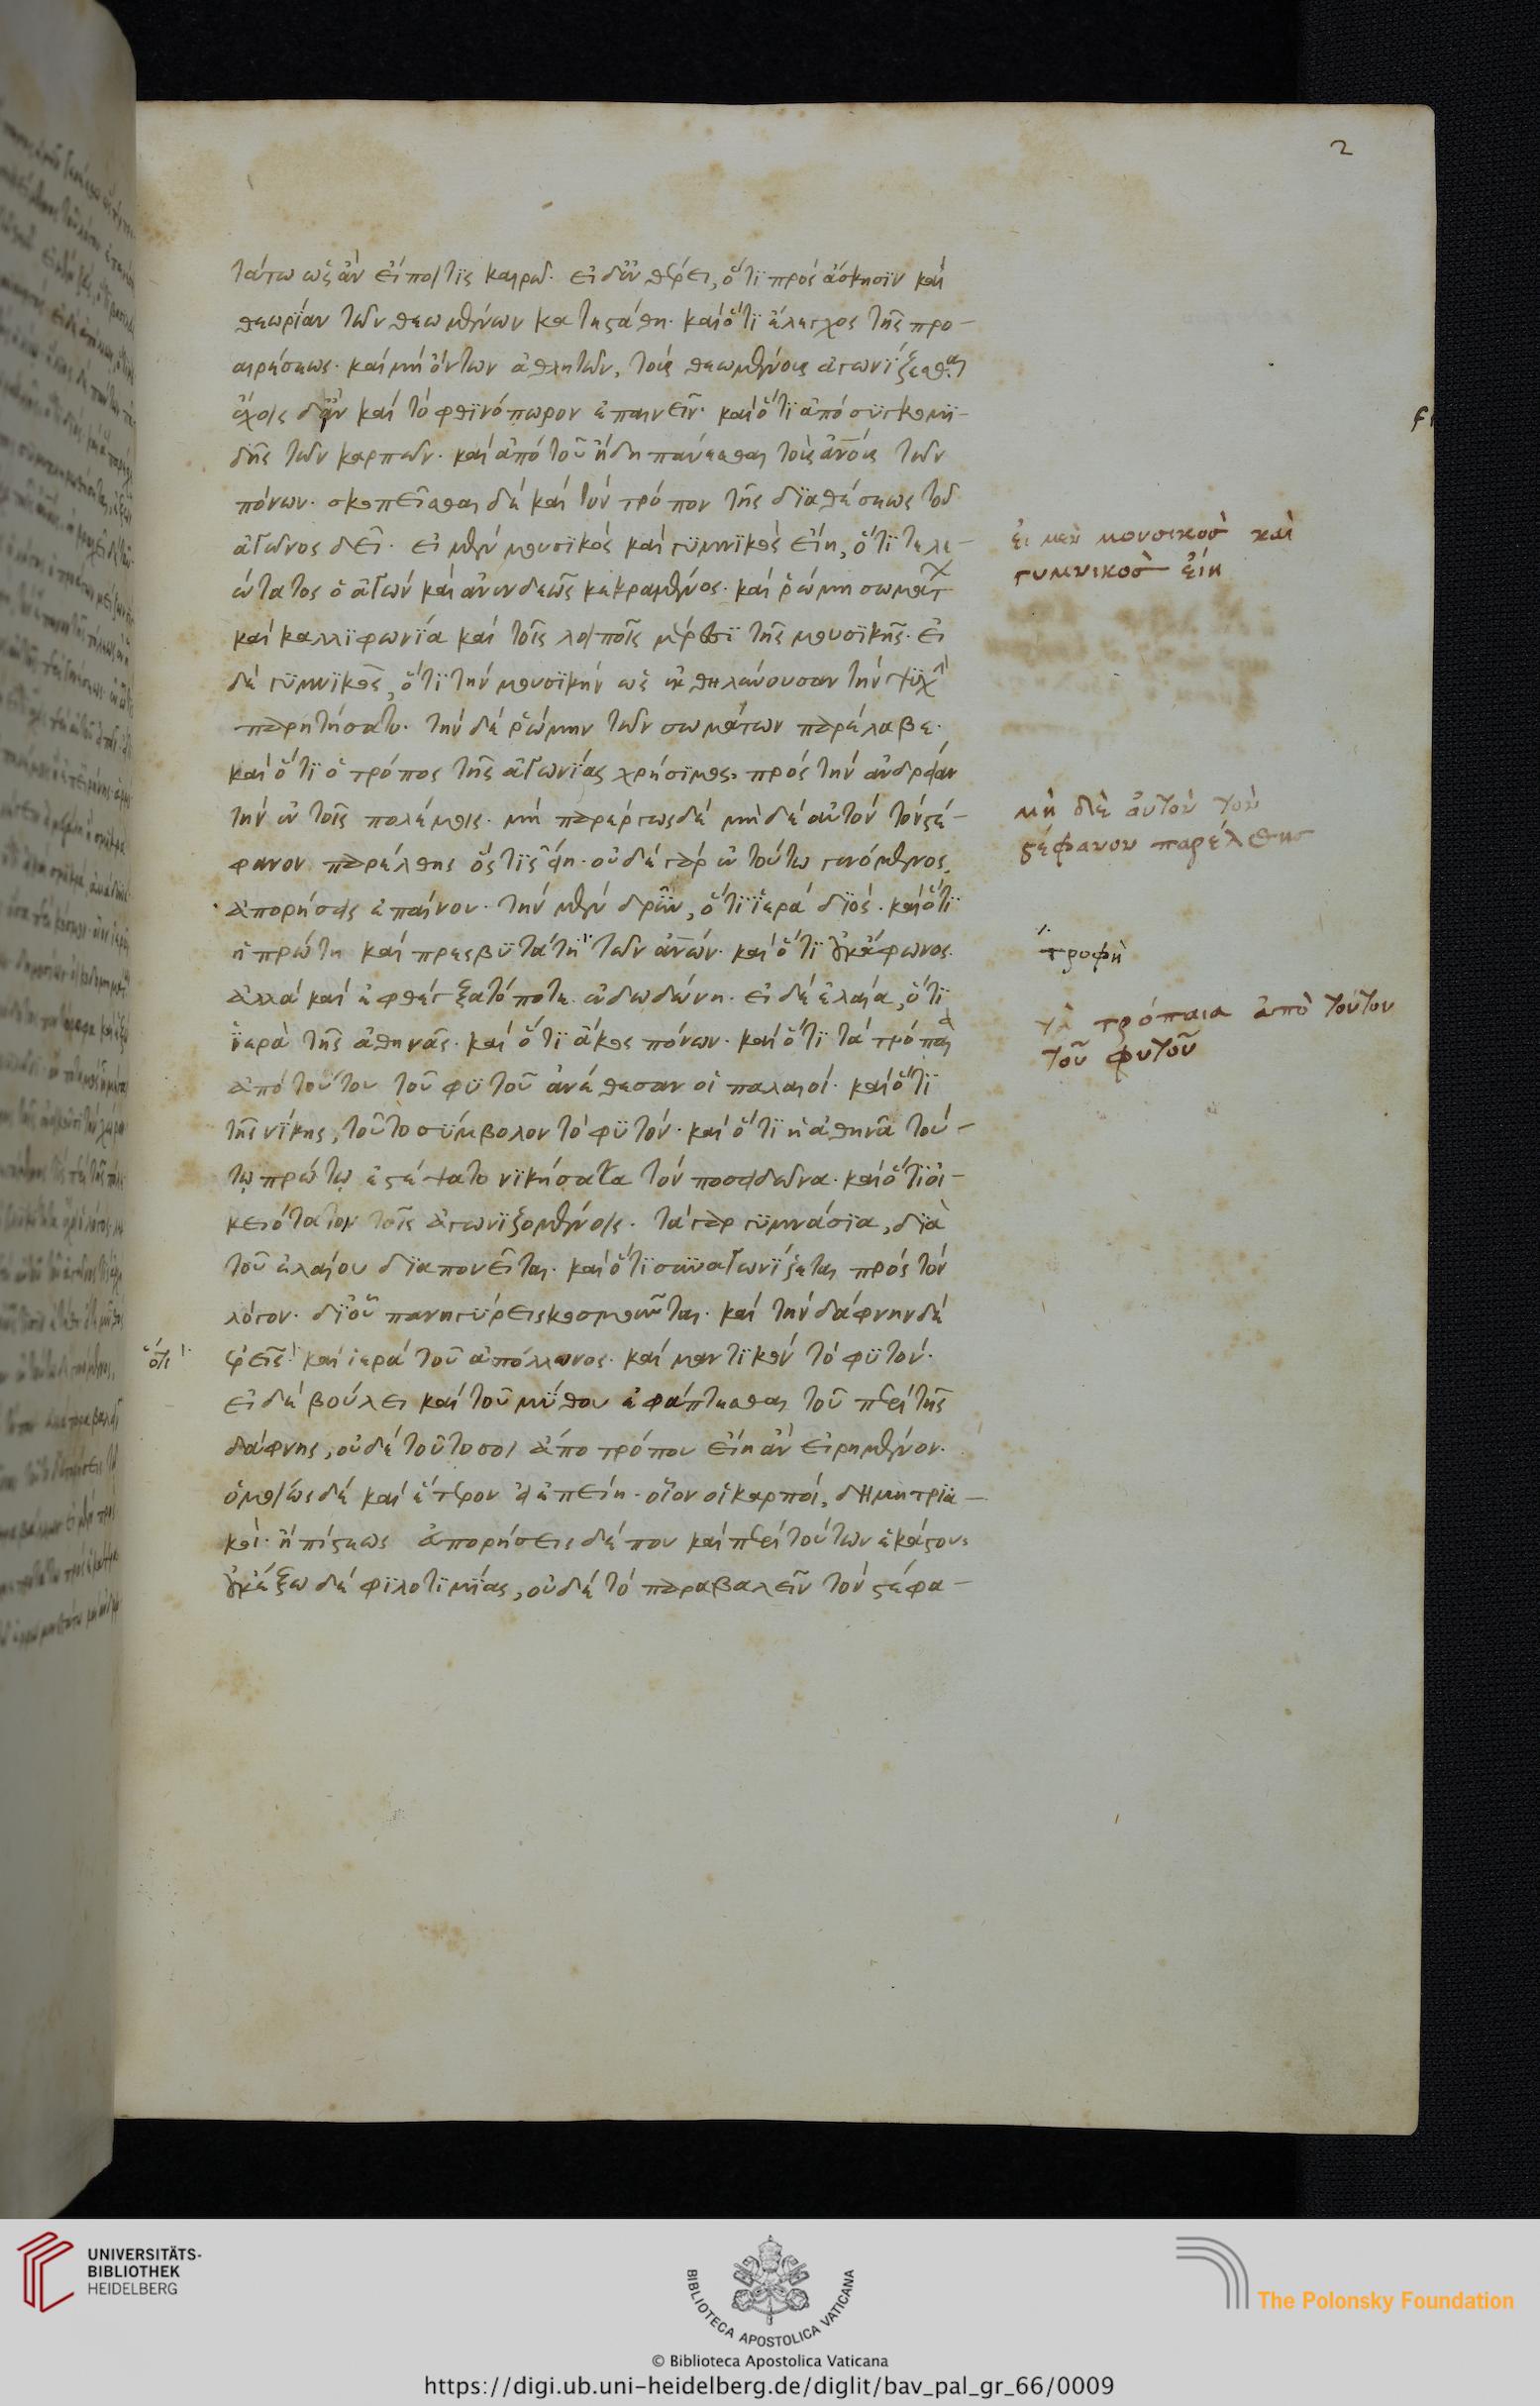 2
τάτω ὡς ἂν εἴποι τὶς καιρῶ· εἰ δ' ἂν θέρει, ὅτι πρὸς ἄσκησιν καὶ
θεωρίαν τῶν θεωμένων κατεστάθη· καὶ ὅτι ἔλεγχος τῆς προ-
αιρέσεως· καὶ μὴ ὄντων ἀθλητῶν, τοὺς θεωμένους ἀγωνίζεσθαι
ἔχοις δ' ἂν καὶ τὸ φθινόπωρον ἐπαινεῖν· καὶ ὅτι ἀπὸ συγκομι-
δῆς τῶν καρπῶν· καὶ ἀπὸ τοῦ ἤδη παύεσθαι τοὺς ἀνους τῶν
πόνων· σκοπεῖσθαι δὲ καὶ τὸν τρόπον τῆς διαθέσεως τοῦ
ἀγῶνος δεῖ· εἰ μὲν μουσικὸς καὶ γυμνικὸς εἴη, ὅτι τελε-
ώτατος ὁ ἀγὼν καὶ ἀνενδεῶς κεκραμένος· καὶ ῥώμη σωμάτ
καὶ καλλιφωνία καὶ τοῖς λοιποῖς μέρεσι τῆς μουσικῆς· εἰ
δὲ γυμνικὸς, ὅτι τὴν μουσικὴν ὡς ἐκθηλύνουσαν τὴν ψυχὴ
παρητήσατο· τὴν δὲ ῥώμην τῶν σωμάτων παρέλαβε·
καὶ ὅτι ὁ τρόπος τῆς ἀγωνίας χρήσιμος, πρὸς τὴν ἀνδρείαν
τὴν ἐν τοῖς πολέμοις· μὴ παρέργως δὲ μὴ δὲ αὐτὸν τὸν στέ-
φανον παρέλθης ὅς τις ἔφη· οὐδὲ γὰρ ἐν τούτω γενόμενος,
ἀπορήσεις ἐπαίνου· τὴν μὲν δρῦν, ὅτι ἱερὰ διός· καὶ ὅτι
ἡ πρώτη καὶ πρεσβυτάτη τῶν ἀνων· καὶ ὅτι οὐκ ἄφωνος.
ἀλλὰ καὶ ἐφθέγξατό ποτε ἐν δωδώνη· εἰ δὲ ἐλαία, ὅτι
ἱερὰ τῆς ἀθηνᾶς· καὶ ὅτι ἄκος πόνων· καὶ ὅτι τὰ τρόπαια
ἀπὸ τούτου τοῦ φυτοῦ ἀνέθεσαν οἱ παλαιοί· καὶ ὅτι
τῆς νίκης, τοῦτο σύμβολον τὸ φυτόν· καὶ ὅτι ἡ ἀθηνᾶ τού-
τῳ πρώτῳ ἐστέψατο νικήσασα τὸν ποσειδῶνα· καὶ ὅτι οἰ-
κειότατον τοῖς ἀγωνιζομένοις· τὰ γὰρ γυμνάσια, διὰ
τοῦ ἐλαίου διαπονεῖται· καὶ ὅτι συναγωνίζεται πρὸς τὸν
λόγον· δι' οὗ πανηγύρεις κοσμοῦνται· καὶ τὴν δάφνην δὲ
ἐρεῖς· καὶ ἱερὰ τοῦ ἀπόλλωνος· καὶ μαντικὸν τὸ φυτόν·
εἰ δὲ βούλει καὶ τοῦ μύθου ἐφάπτεσθαι τοῦ περὶ τῆς
δάφνης, οὐδὲ τοῦτο σοι ἀπο τρόπου εἴη ἂν εἰρημένον·
ὁμοίως δὲ καὶ ἕτερον εἰ ἐπείη· οἷον οἱ καρποί, δημητρια-
κοί· ἢ πίστεως ἀπορήσεις δέ που καὶ περὶ τούτων ἑκάστου·
οὐκ ἔξω δὲ φιλοτιμίας, οὐδὲ τὸ παραβαλεῖν τὸν στέφα-
ὅτι
εἰ μὲν μουσικοσ καὶ
γυμνικοσ εἴη
μὴ δὲ αὐτὸν τὸν
στέφανον παρέλθησ
τροφὴ
τὰ τρόπαια ἀπὸ τούτου
τοῦ φυτοῦ
UNIVERSITÄTS-
BIBLIOTHEK
HEIDELBERG
BIBLIOTECA APOSTOLICA VATICANA
The Polonsky Foundation
© Biblioteca Apostolica Vaticana
https://digi.ub.uni-heidelberg.de/diglit/bav_pal_gr_66/0009